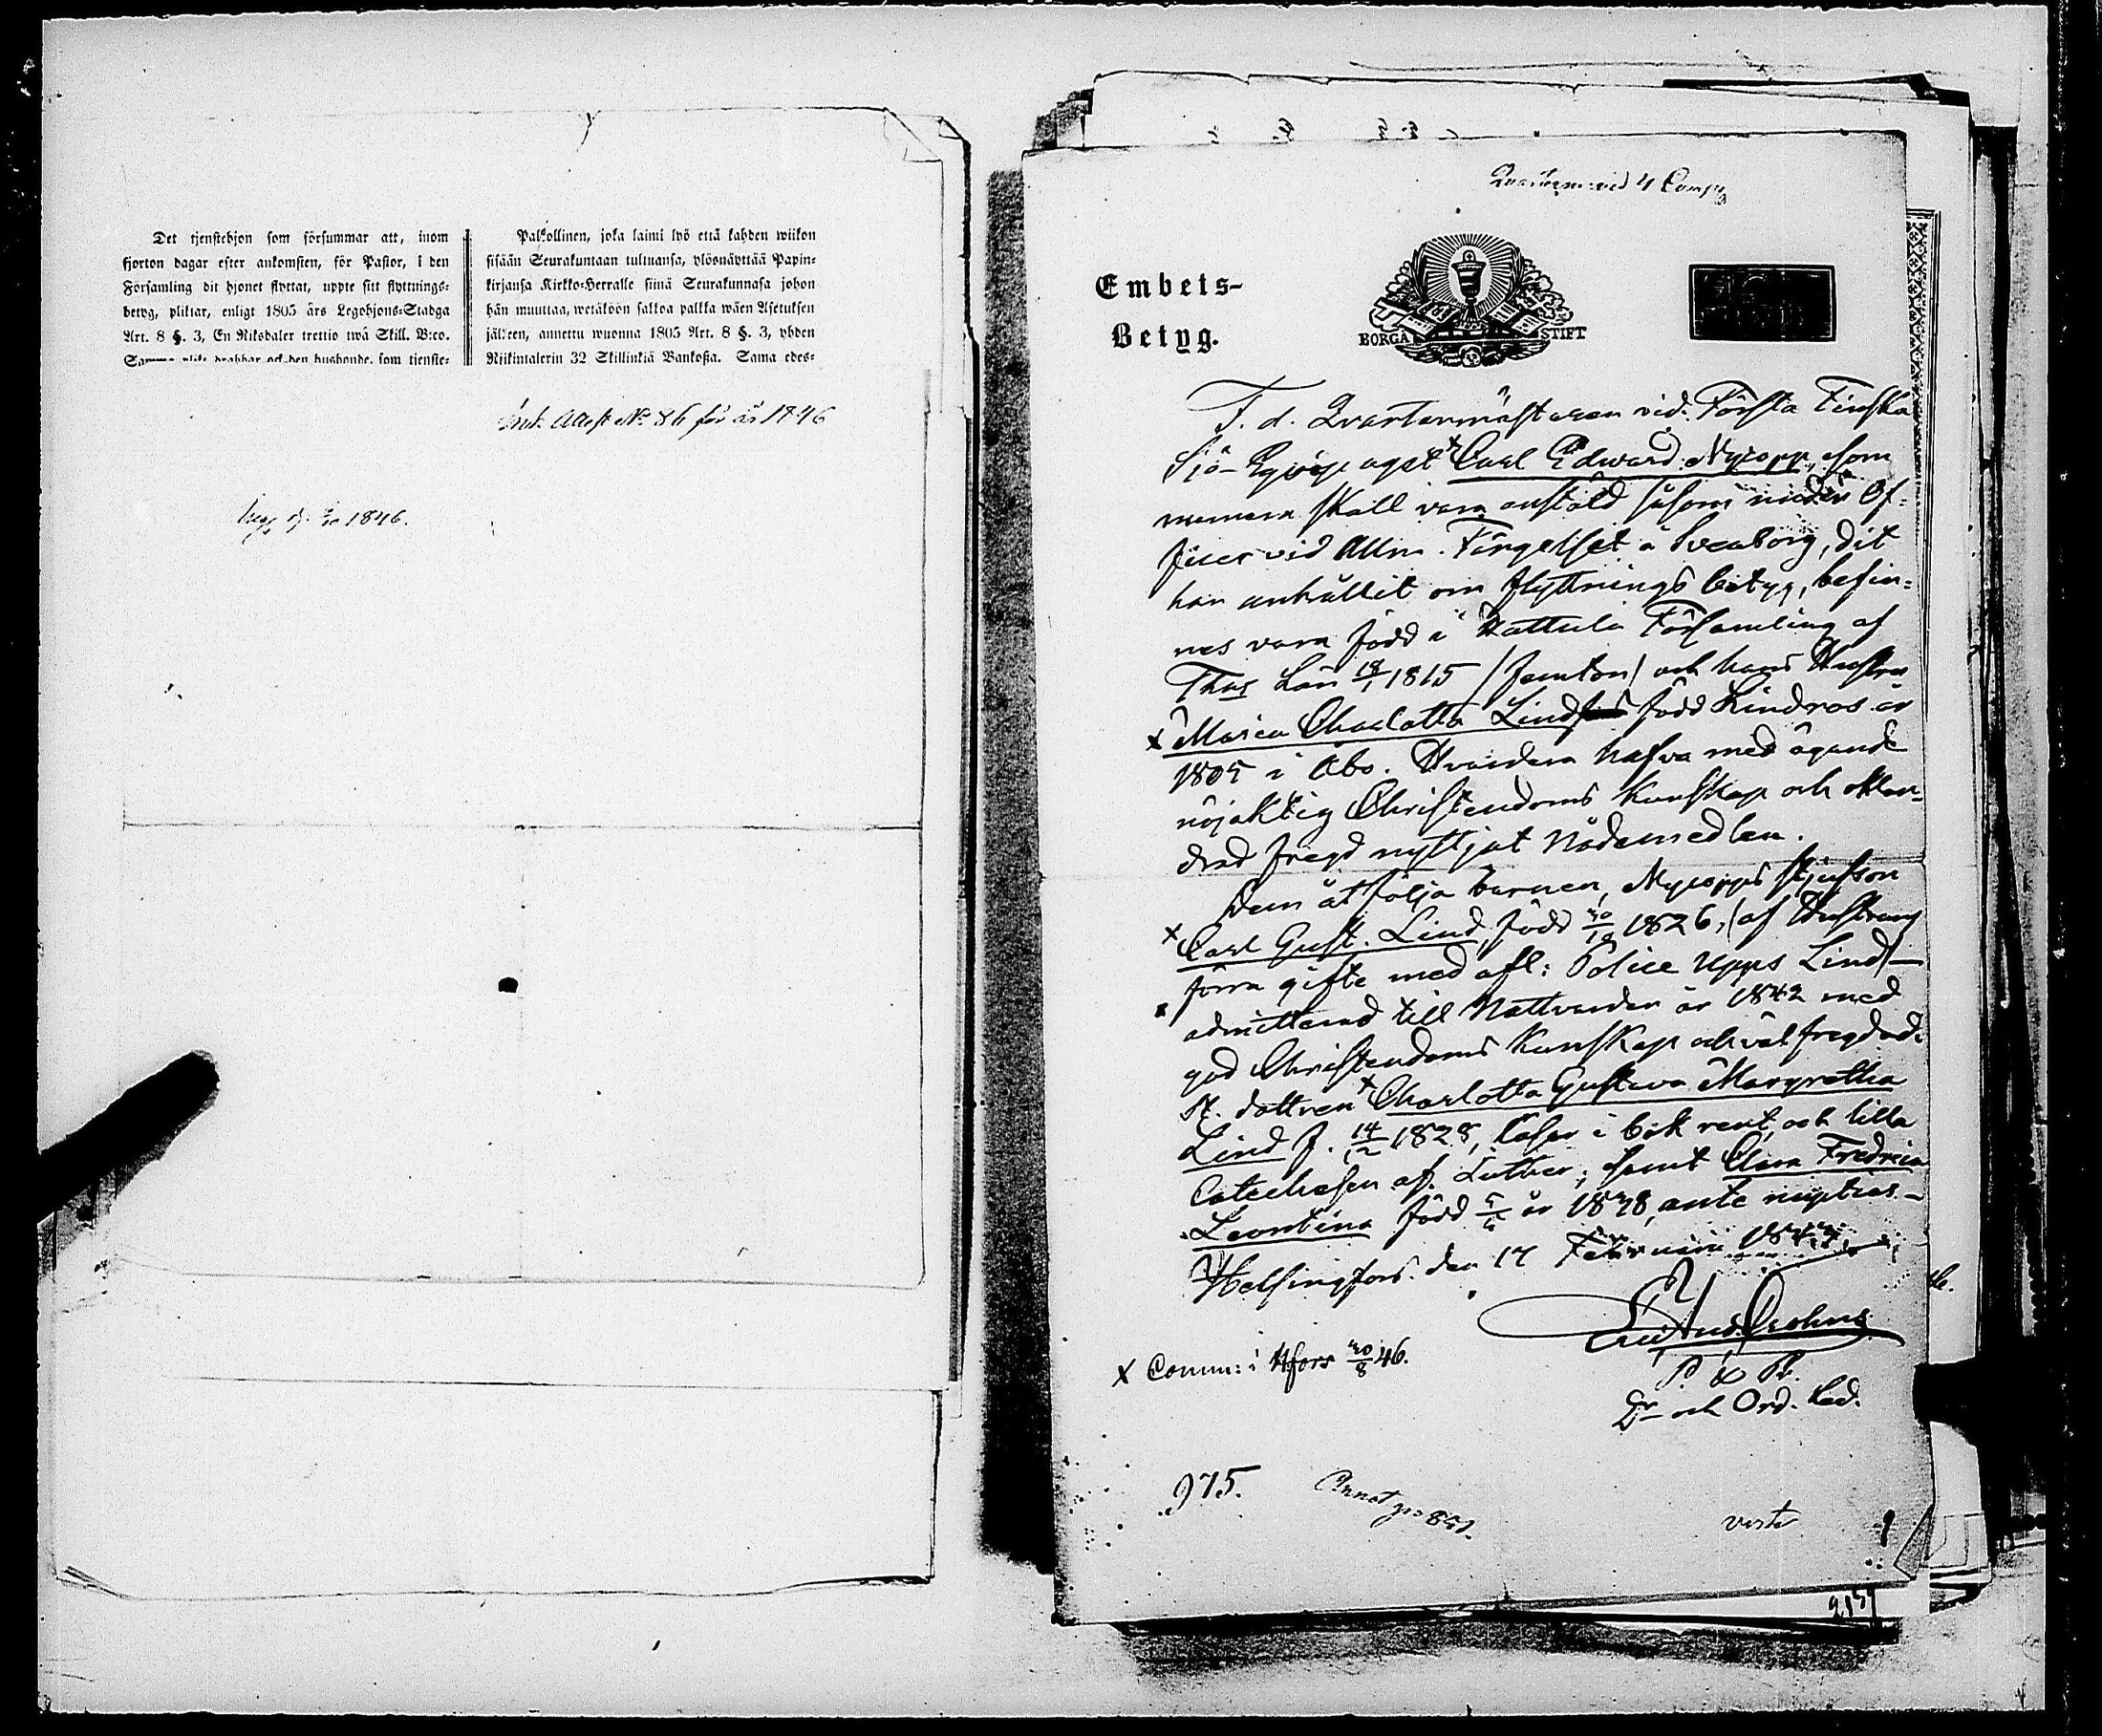 Det tjenstehjon som försummar att, inom
fjorton dagar efter ankomsten, för Pastor, i den
Församling dit hjonet flyttat, uppte sitt flyttnings-
betyg, pliktar, enligt 1805 års Legohjons-Stadga
Art. 8 §. 3, En Riksdaler trettio twå Skill. B:co.
Samma plikt drabbar ock den husbonde, som tjenste-
Palkollinen, joka laimi lyö että kahden wiikon
sisään Seurakuntaan tultuansa, ylösnäyttää Papin-
kirjansa Kirkko-Herralle siinä Seurakunnasa johon
hän muuttaa, wetäköön sakkoa palkka wäen Asetuksen
jälkeen, annettu wuonna 1805 Art. 8 §. 3, yhden
Rijkintalerin 32 Skillinkiä Bankoßa. Sama edes-
Ink. Attest No 86 för år 1846
1846.
vid 4 Comp
Embets-
Betyg.
BORGÅ STIFT
F. d. Qvartermästaren vid Första Finska
Sjö-Eqvipaget Carl Edward Nycopp, som
numera skall vara anstäld såsom under Of-
ficer vid Allm. Fängelset å Sveaborg, dit
han anhållit om flyttnings betyg, befin-
nes vara född i Hattula Församling af
Thus Län 18/1 1815 /femton/ och hans Hustru
x Maria Charlotta Lind född Lindros år
1805 i Åbo. Hvardera hafva med ägande
nöjaktig Christendoms kunskap och oklan-
drad fregd nyttjat Nådemedlen.
Dem åtfölja barnen, Nycopps stjufson
x Carl Gust. Lind, född 30/10 1826, (af Hustruns
förra gifte med afl: Police Upps Lind)—
admitterad till Nattvarden år 1842 med
god Christendoms kunskap och väl fregdad.
st. dottren x Charlotta Gustava Margretha
Lind f. 14/12 1828, läser i bok rent och lilla
Catechesen af Luther; samt Clara Fredrica
Leontina född år 1838, ante nuptias —
Helsingfors den 17 Februari 1847
P & Pr.
Dr och Ord. Led.
x Comm: i Hfors 30/8 46.
975.
Annot
verte